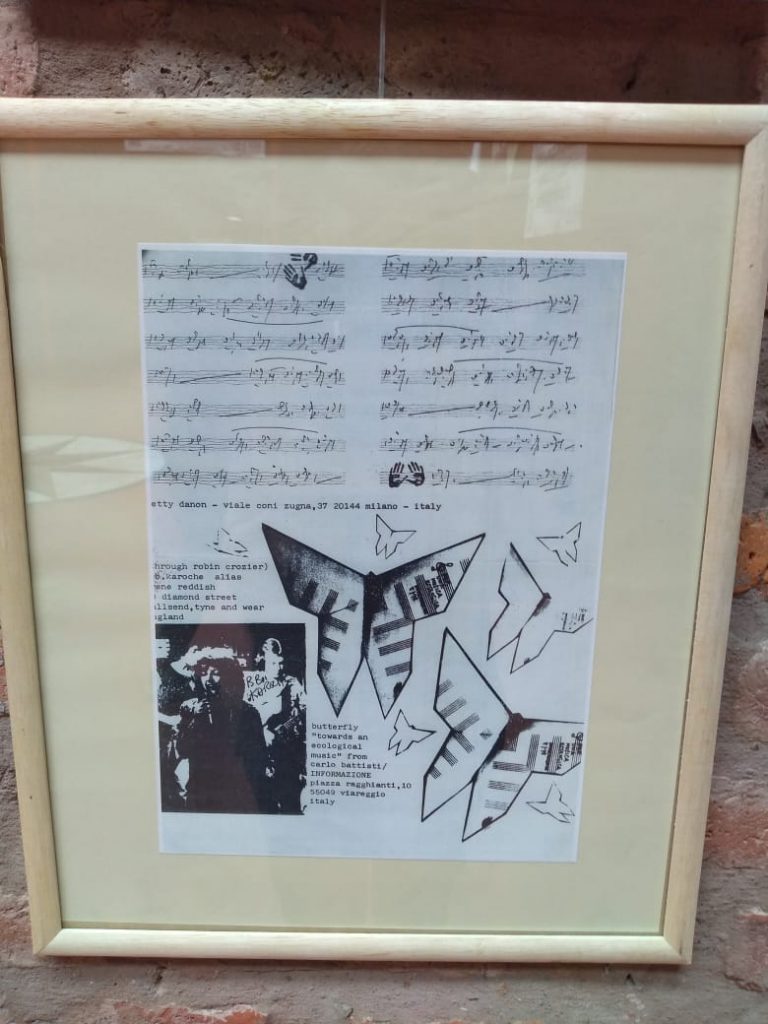 etty danon - viale coni zugna,37 20144 milano - italy
hrough robin crozier)
b.karoche alias
ne reddish
diamond street
llsend,tyne and wear
gland
butterfly
"towards an
ecological
music" from
carlo battisti/
INFORMAZIONE
piazza ragghianti,10
55049 viareggio
italy